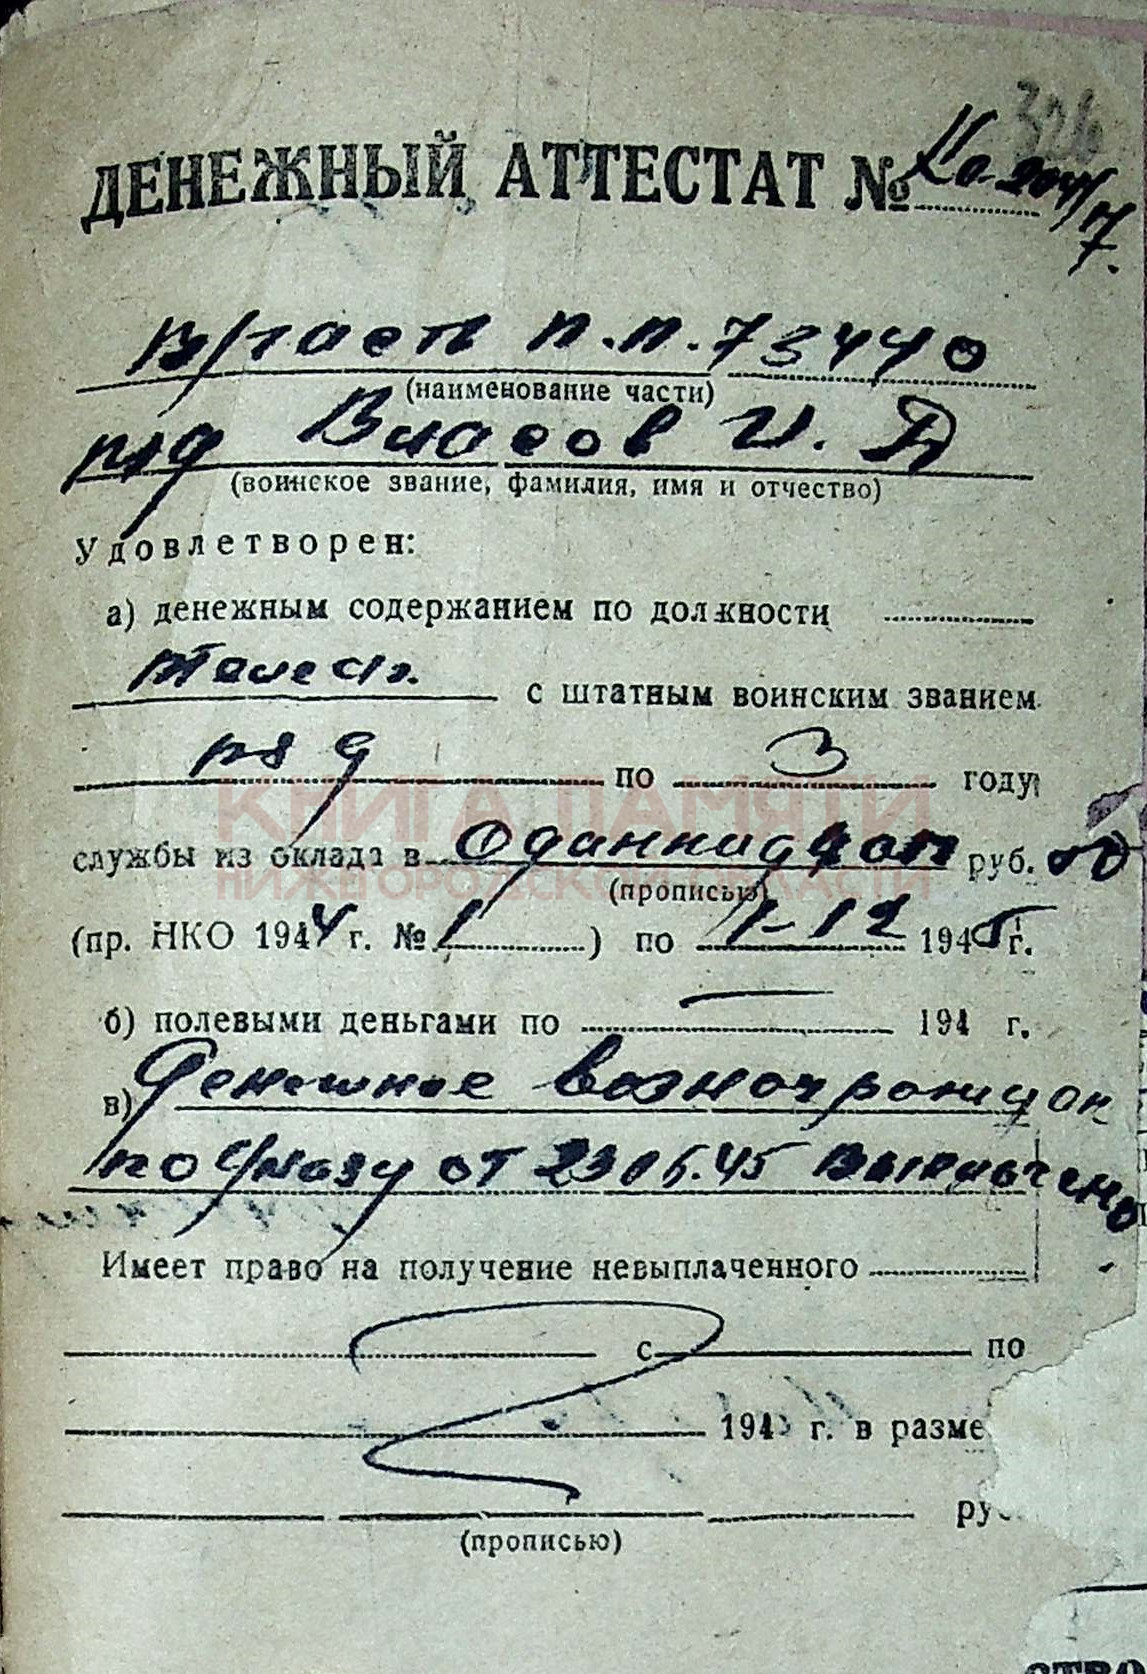 326
ДЕНЕЖНЫЙ АТТЕСТАТ №
В/часть п.п. 73440
(наименование части)
ряд Власов И. Д
(воинское звание, фамилия, имя и отчество)
Удовлетворен:
а) денежным содержанием по должности
с штатным воинским званием
ряд по 3 году
КНИГА ПАМЯТИ
службы из оклада в Одиннадцать руб. 00
НИЖЕГОРОДСКОЙ ОБЛАСТИ
(прописью)
(пр. НКО 1944 г. № 1 ) по 1-12 1945 г.
б) полевыми деньгами по — 194 г.
в) Денежное
по Указу от 23 06.45 Выплачено
Имеет право на получение невыплаченного
с по
194 г. в разме
ру
(прописью)
ство